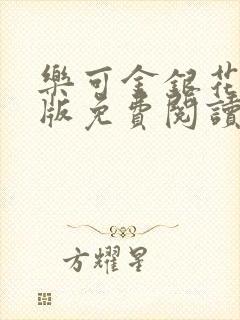 樂可金銀花
版免費閱讀
方耀星